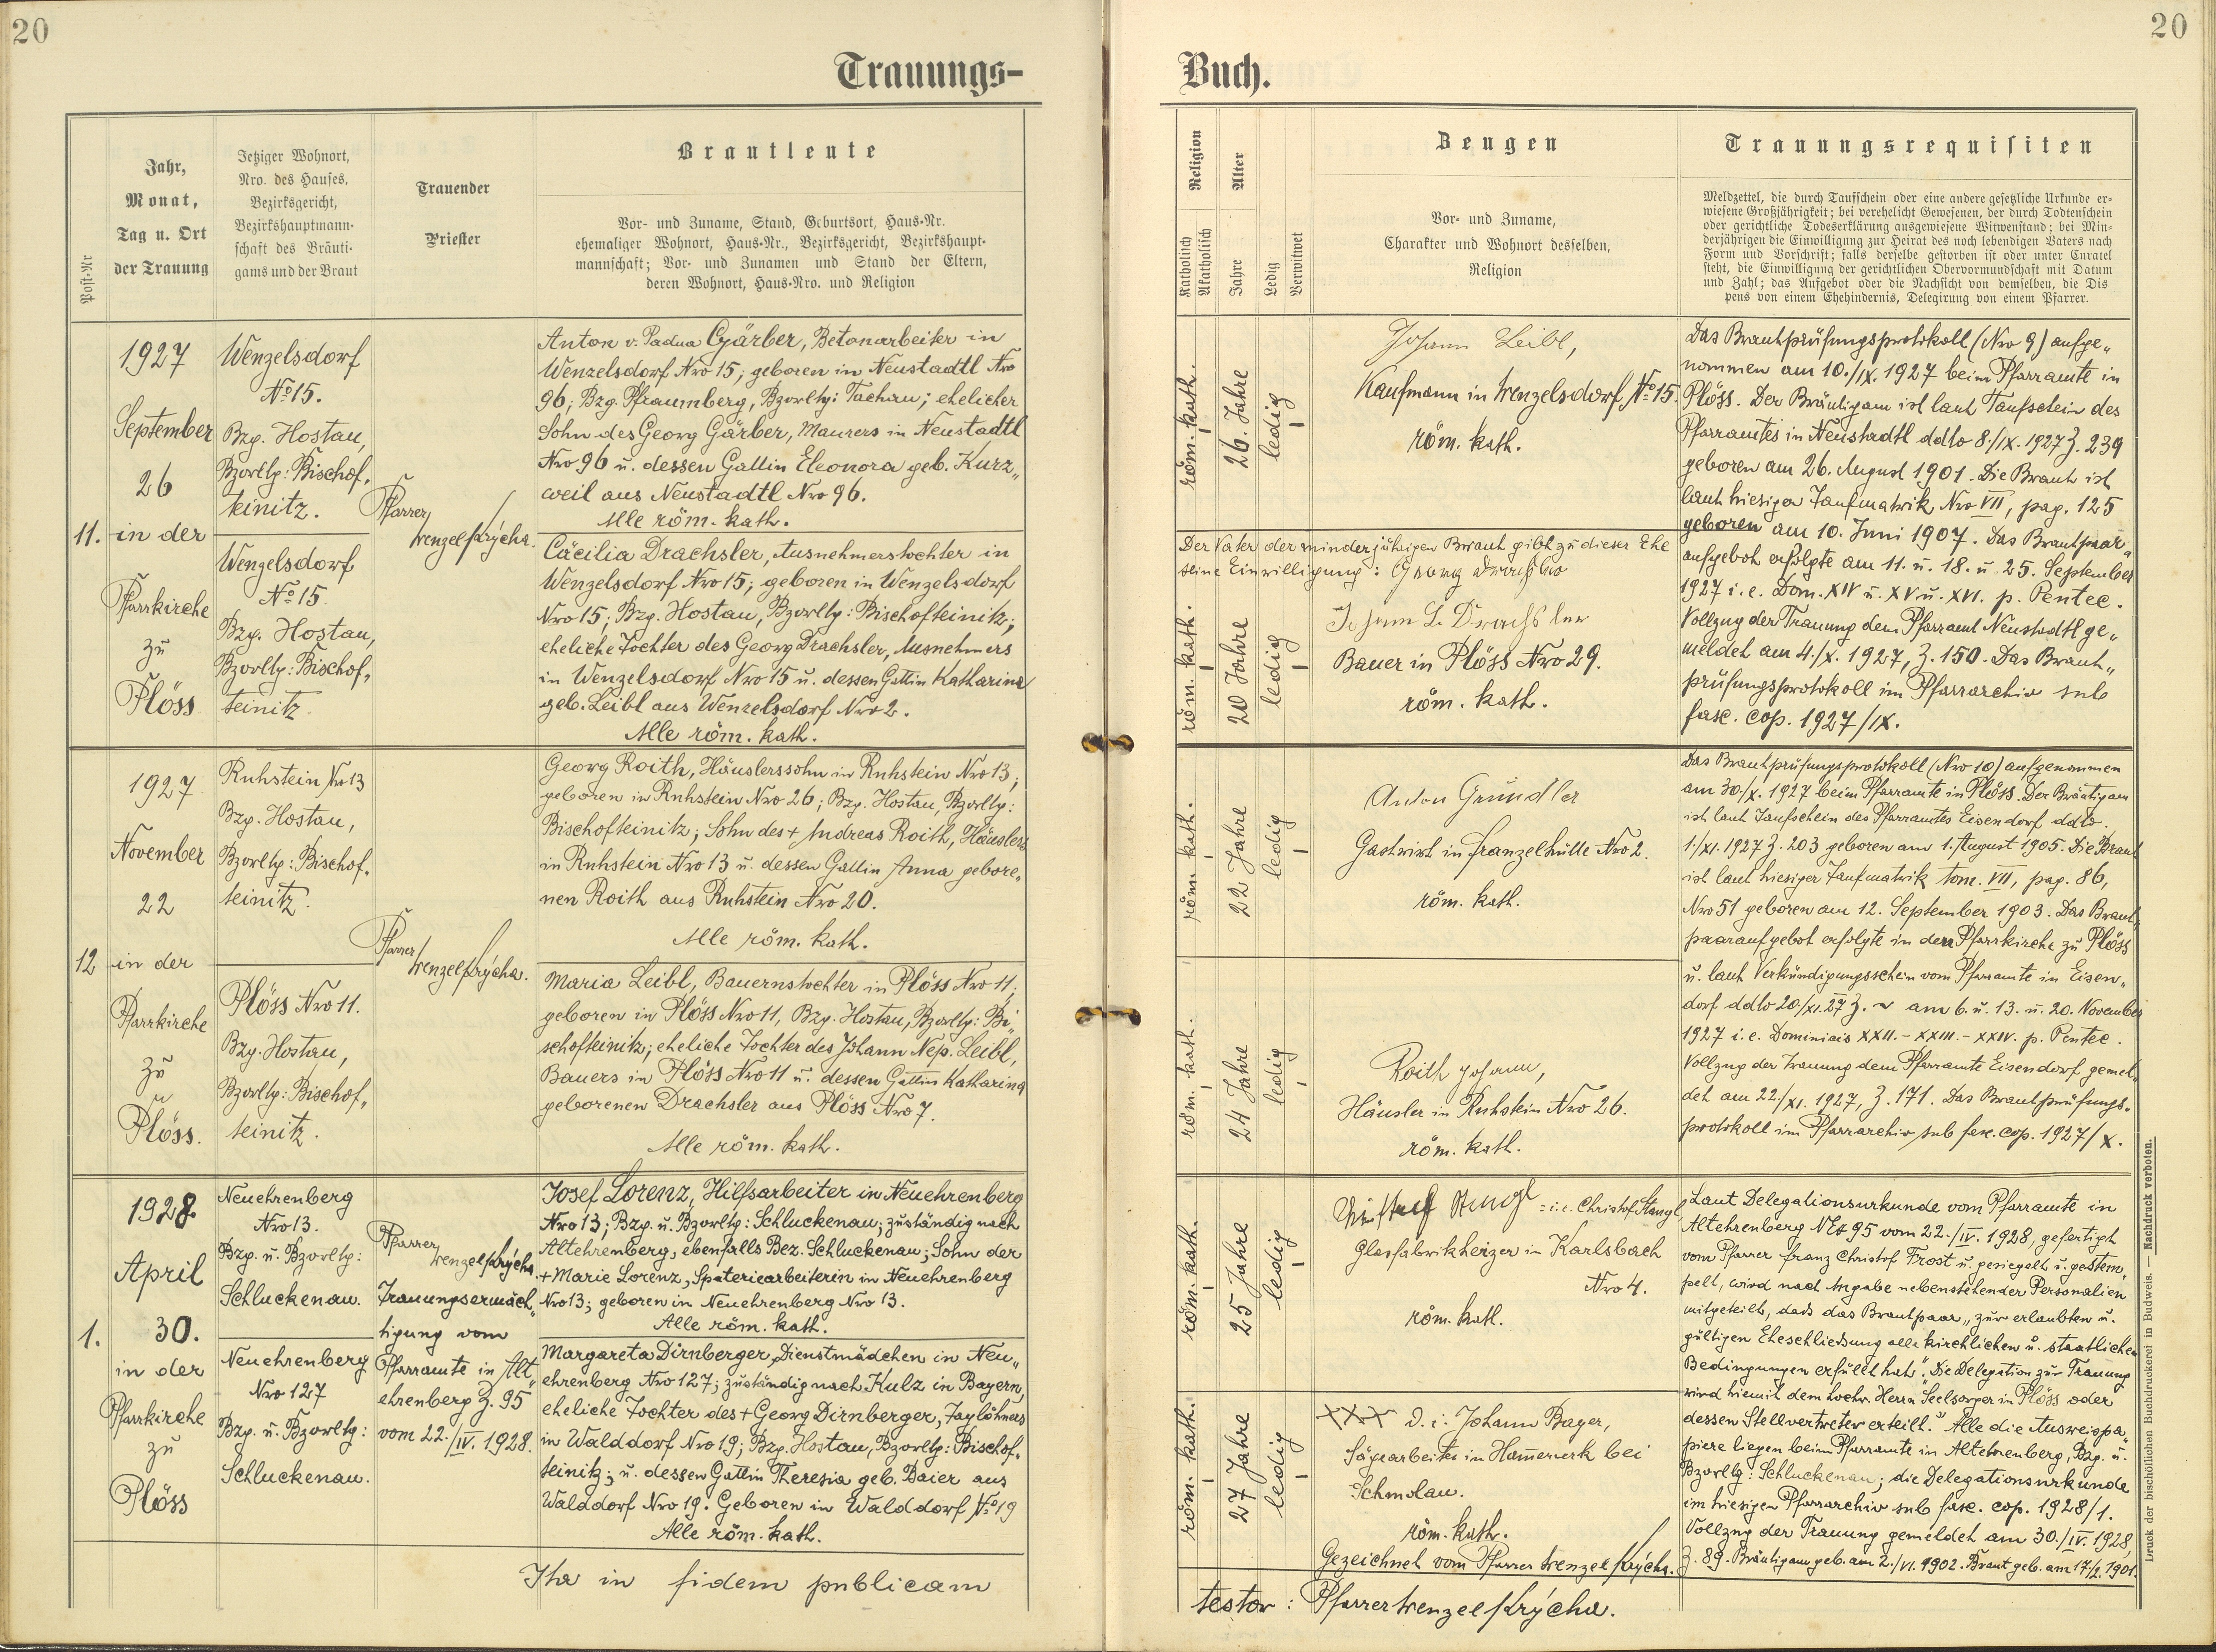 20
Trauungs-
Post-Nr
Jahr,
Monat,
Tag u. Ort
der Trauung
Jetziger Wohnort,
Nro. des Hauses,
Bezirksgericht,
Bezirkshauptmann-
schaft des Bräuti-
gams und der Braut
Trauender
Priester
Brautleute
Vor- und Zuname, Stand, Geburtsort, Haus-Nr.
ehemaliger Wohnort, Haus-Nr., Bezirksgericht, Bezirkshaupt-
mannschaft; Vor- und Zunamen und Stand der Eltern,
deren Wohnort, Haus-Nro. und Religion
11.
1927
September
26
in der
Pfarrkirche
zu
Plöss
Wenzelsdorf
No 15.
Bzg. Hostau,
Bzvrltg: Bischof„
teinitz.
Wenzelsdorf
No 15.
Bzg. Hostau,
Bzvrltg: Bischof„
teinitz.
Pfarrer
Wenzel Krýcha.
Anton v. Padua Gärber, Betonarbeiter in
Wenzelsdorf Nro 15; geboren in Neustadtl Nro
96; Bzg. Pfraumberg, Bzvrltg: Tachau; ehelicher
Sohn des Georg Gärber, Maurers in Neustadtl
Nro 96 u. dessen Gattin Eleonora geb. Kurz„
weil aus Neustadtl Nro 96.
Alle röm. kath.
Cäcilia Drachsler, Ausnehmerstochter in
Wenzelsdorf Nro 15; geboren in Wenzelsdorf
Nro 15; Bzg. Hostau, Bzvrltg: Bischofteinitz;
eheliche Tochter des Georg Drachsler, Ausnehmers
in Wenzelsdorf Nro 15 u. dessen Gattin Katharina
geb. Leibl aus Wenzelsdorf Nro 2.
Alle röm. kath.
12
1927
November
22
in der
Pfarrkirche
zu
Plöss.
Ruhstein Nro 13
Bzg. Hostau,
Bzvrltg: Bischof„
teinitz.
Plöss Nro 11.
Bzg. Hostau,
Bzvrltg: Bischof„
teinitz.
Pfarrer
Wenzel Krýcha.
Georg Roith, Häuslerssohn in Ruhstein Nro 13;
geboren in Ruhstein Nro 26; Bzg. Hostau, Bzvrltg:
Bischofteinitz; Sohn des + Andreas Roith, Häuslers
in Ruhstein Nro 13 u. dessen Gattin Anna gebore„
nen Roith aus Ruhstein Nro 20.
Alle röm. kath.
Maria Leibl, Bauernstochter in Plöss Nro 11;
geboren in Plöss Nro 11, Bzg. Hostau, Bzvrltg: Bi„
schofteinitz; eheliche Tochter des Johann Nep. Leibl,
Bauers in Plöss Nro 11 u. dessen Gattin Katharina
geborenen Drachsler aus Plöss Nro 7.
Alle röm. kath.
1.
1928
April
30.
in der
Pfarrkirche
zu
Plöss
Neuehrenberg
Nro 13.
Bzg. u. Bzvrltg:
Schluckenau.
Neuehrenberg
Nro 127
Bzg. u. Bzvrltg:
Schluckenau.
Pfarrer
Wenzel Krýcha
Trauungsermäch„
tigung vom
Pfarramte in Alt„
ehrenberg Z. 95
vom 22./IV. 1928.
Josef Lorenz, Hilfsarbeiter in Neuehrenberg
Nro 13; Bzg. u. Bzvrltg: Schluckenau; zuständig nach
Altehrenberg, ebenfalls Bez. Schluckenau; Sohn der
+ Marie Lorenz, Spateriearbeiterin in Neuehrenberg
Nro 13; geboren in Neuehrenberg Nro 13.
Alle röm. kath.
Margareta Dirnberger, Dienstmädchen in Neu„
ehrenberg Nro 127; zuständig nach Kulz in Bayern,
eheliche Tochter des + Georg Dirnberger, Taglöhners
in Walddorf Nro 19; Bzg. Hostau, Bzvrltg: Bischof„
teinitz; u. dessen Gattin Theresia geb. Baier aus
Walddorf Nro 19. Geboren in Walddorf No 19
Alle röm. kath.
in fidem publicam
20
Buch.
Religion
Katholisch
Akatholisch
Alter
Jahre
Ledig
Verwitwet
Zeugen
Vor- und Zuname,
Charakter und Wohnort desselben,
Religion
Trauungsrequisiten
Meldzettel, die durch Taufschein oder eine andere gesetzliche Urkunde er-
wiesene Großjährigkeit; bei verehelicht Gewesenen, der durch Todtenschein
oder gerichtliche Todeserklärung ausgewiesene Witwenstand; bei Min-
derjährigen die Einwilligung zur Heirat des noch lebendigen Vaters nach
Form und Vorschrift; falls derselbe gestorben ist oder unter Curatel
steht, die Einwilligung der gerichtlichen Obervormundschaft mit Datum
und Zahl; das Aufgebot oder die Nachsicht von demselben, die Dis
pens von einem Ehehindernis, Delegirung von einem Pfarrer.
röm. kath.
26 Jahre
ledig
Johann Leibl,
Kaufmann in Wenzelsdorf No 15.
röm. kath.
Der Vater der minderjährigen Braut gibt zu dieser Ehe
seine Einwilligung: Georg Drachsler
röm. kath.
20 Jahre
ledig
Johann L. Drachsler
Bauer in Plöss Nro 29.
röm. kath.
Das Brautprüfungsprotokoll (Nro 9) aufge„
nommen am 10./IX. 1927 beim Pfarramte in
Plöss. Der Bräutigam ist laut Taufschein des
Pfarramtes in Neustadtl ddto 8./IX. 1927 Z. 239
geboren am 26. August 1901. Die Braut ist
laut hiesiger Taufmatrik Nro VII, pag. 125
geboren am 10. Juni 1907. Das Brautpaar„
aufgebot erfolgte am 11. u. 18. u. 25. September
1927 i. e. Dom. XIV u. XV u. XVI. p. Pentec.
Vollzug der Trauung dem Pfarramt Neustadtl ge„
meldet am 4./X. 1927, Z. 150. Das Braut„
prüfungsprotokoll im Pfarrarchiv sub
fasc. cop. 1927/IX.
röm. kath.
22 Jahre
ledig
Anton Gründler
Gastwirt in Franzelhütte Nro 2.
röm. kath.
röm. kath.
24 Jahre
ledig
Roith Johann,
Häusler in Ruhstein Nro 26.
röm. kath.
Das Brautprüfungsprotokoll (Nro 10) aufgenommen
am 30./X. 1927 beim Pfarramte in Plöss. Der Bräutigam
ist laut Taufschein des Pfarramtes Eisendorf ddto.
1./XI. 1927 Z. 203 geboren am 1. August 1905. Die Braut
ist laut hiesiger Taufmatrik tom. VII, pag. 86,
Nro 51 geboren am 12. September 1903. Das Braut„
paaraufgebot erfolgte in der Pfarrkirche zu Plöss
u. laut Verkündigungsschein vom Pfarramte in Eisen„
dorf ddto 20/XI. 27 Z. ~ am 6. u. 13. u. 20. November
1927 i. e. Dominicis XXII. - XXIII. - XXIV. p. Pentec.
Vollzug der Trauung dem Pfarramte Eisendorf gemel„
det am 22./XI. 1927, Z. 171. Das Brautprüfungs„
protokoll im Pfarrarchiv sub fasc. cop. 1927/X.
röm. kath.
25 Jahre
ledig
Christof Stangl = i. e. Christof Stangl
Glasfabrikheizer in Karlsbach
Nro 4.
röm. kath.
röm. kath.
27 Jahre
ledig
XXX d. i. Johann Bayer,
Sägearbeiter in Hammerwerk bei
Schmolau.
röm. kath.
Gezeichnet vom Pfarrer Wenzel Krýcha.
Laut Delegationsurkunde vom Pfarramte in
Altehrenberg 95 vom 22./IV. 1928, gefertigt
vom Pfarrer Franz Christof Frost u. gesiegelt u. gestem„
pelt, wird nach Angabe nebenstehender Personalien
mitgeteilt, dass das Brautpaar „zur erlaubten u.
gültigen Eheschliessung alle kirchlichen u. staatlichen
Bedingungen erfüllt hat". „Die Delegation zur Trauung
wird hiemit dem hochw. Herrn Seelsorger in Plöss oder
dessen Stellvertreter erteilt." Alle die Ausweispa„
piere liegen beim Pfarramte in Altehrenberg, Bzg. u.
Bzvrltg: Schluckenau; die Delegationsurkunde
im hiesigen Pfarrarchiv sub fasc. cop. 1928/1.
Vollzug der Trauung gemeldet am 30./IV. 1928,
Z. 89. Bräutigam geb. am 2./VI. 1902. Braut geb. am 17/2. 1901.
testor: Pfarrer Wenzel Krýcha.
Druck der bischöflichen Buchdruckerei in Budweis. — Nachdruck verboten.